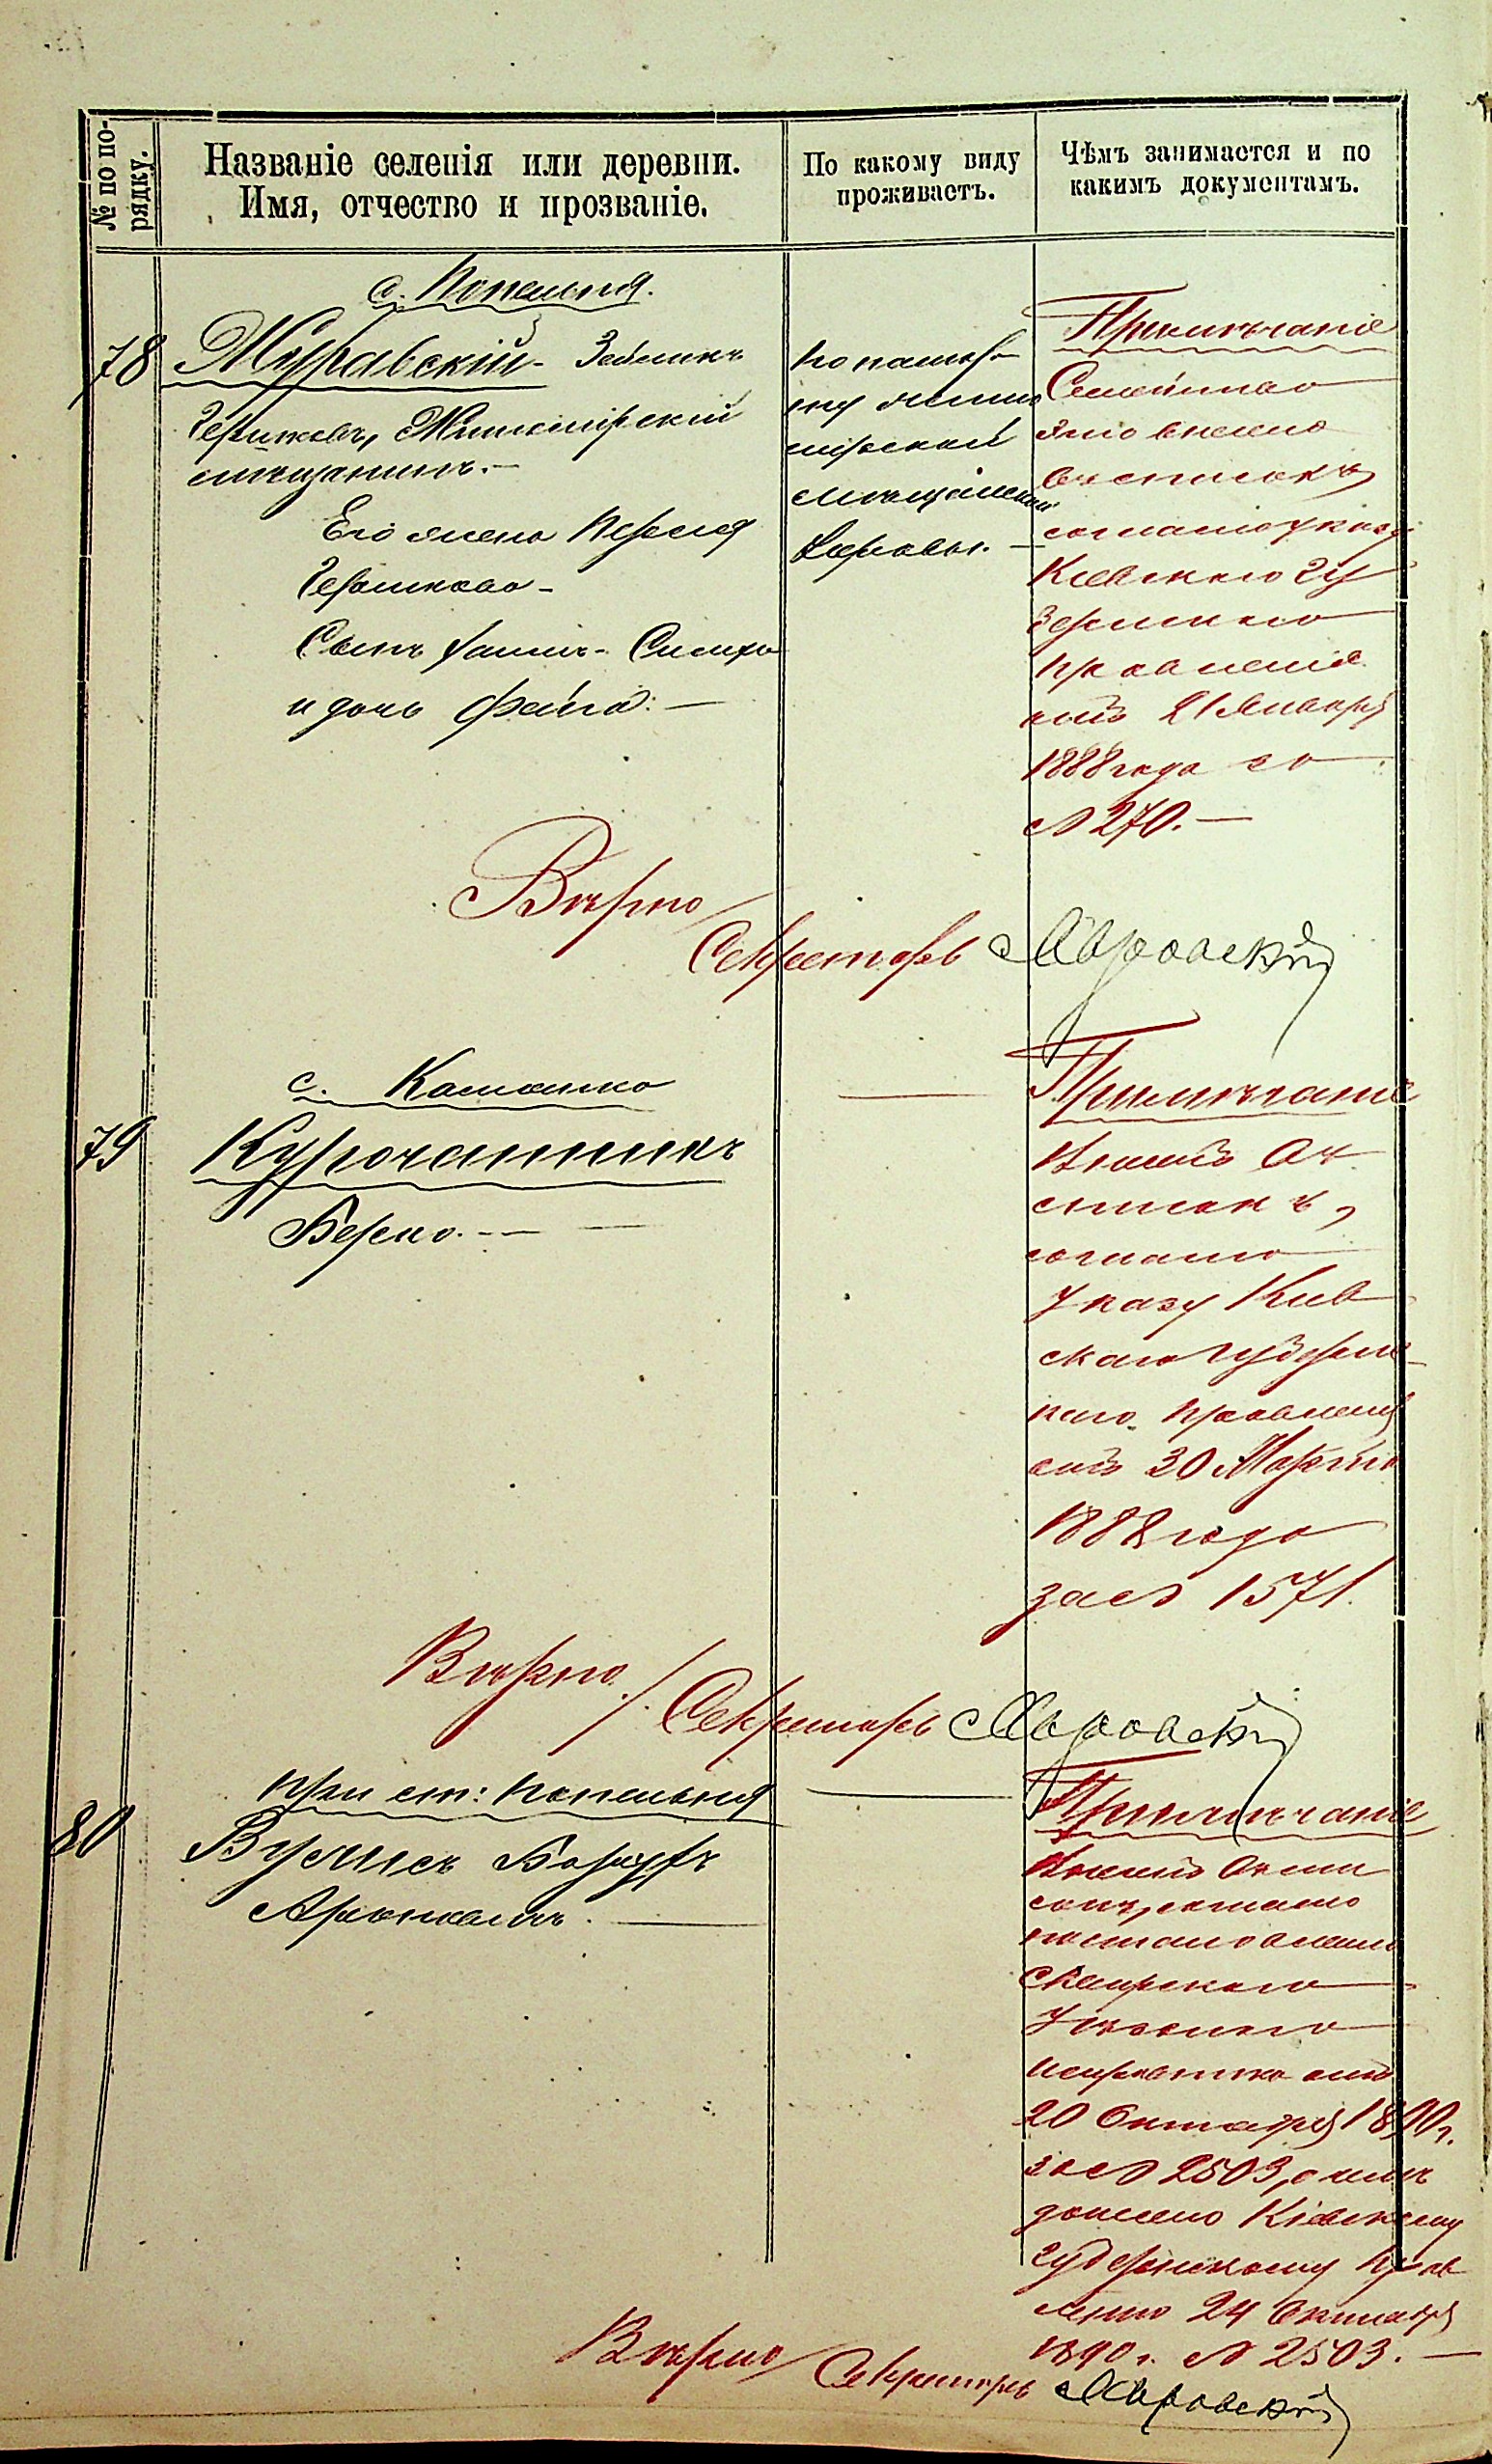 № по по-
рядку.
Названіе селенія или деревни.
Имя, отчество и прозваніе.
По какому виду
проживаетъ.
Чѣмъ занимается и по
какимъ документамъ.
с. Попельня.
78
Журавскій
Житомірскій
мѣщанинъ.
Его жена
Сынъ
и дочь Фейга.
По паспор-
ту Жито
мірской
мѣщанской
Управы.
Примѣчаніе
Семейство
это внесено
въ списокъ
согласно указу
Кіевскаго Гу
бернскаго
Правленія
отъ 21 Января
1888 года за
№ 270.
Вѣрно
Секретарь
с. Каменка
79
Курочатникъ
Берко.
Примѣчаніе
Внесенъ въ
списокъ,
согласно
указу Кіев
скаго Губернс-
каго Правленія
отъ 30 Марта
1888 года
за № 1571.
Вѣрно.
Секретарь
при ст: Попельня
80
Вульисъ Борухъ
Примѣчаніе
Внесенъ въ спи
сокъ, согласно
постановленію
Сквирскаго
Уѣзднаго
Исправника отъ
20 Октября 1890 г.
за № 2503, о чемъ
донесено Кіевскому
Губернскому Прав
ленію 24 Октября
1890 г. № 2503.
Вѣрно
Секретарь